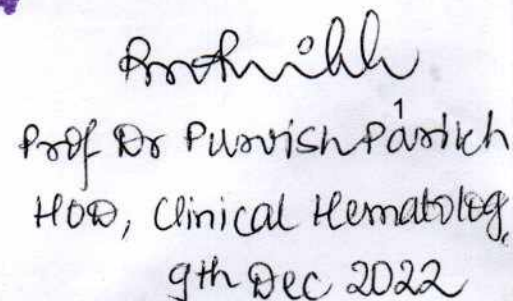 Prof Dr Purvish Parikh
HOD, Clinical Hematolog,
9th Dec 2022